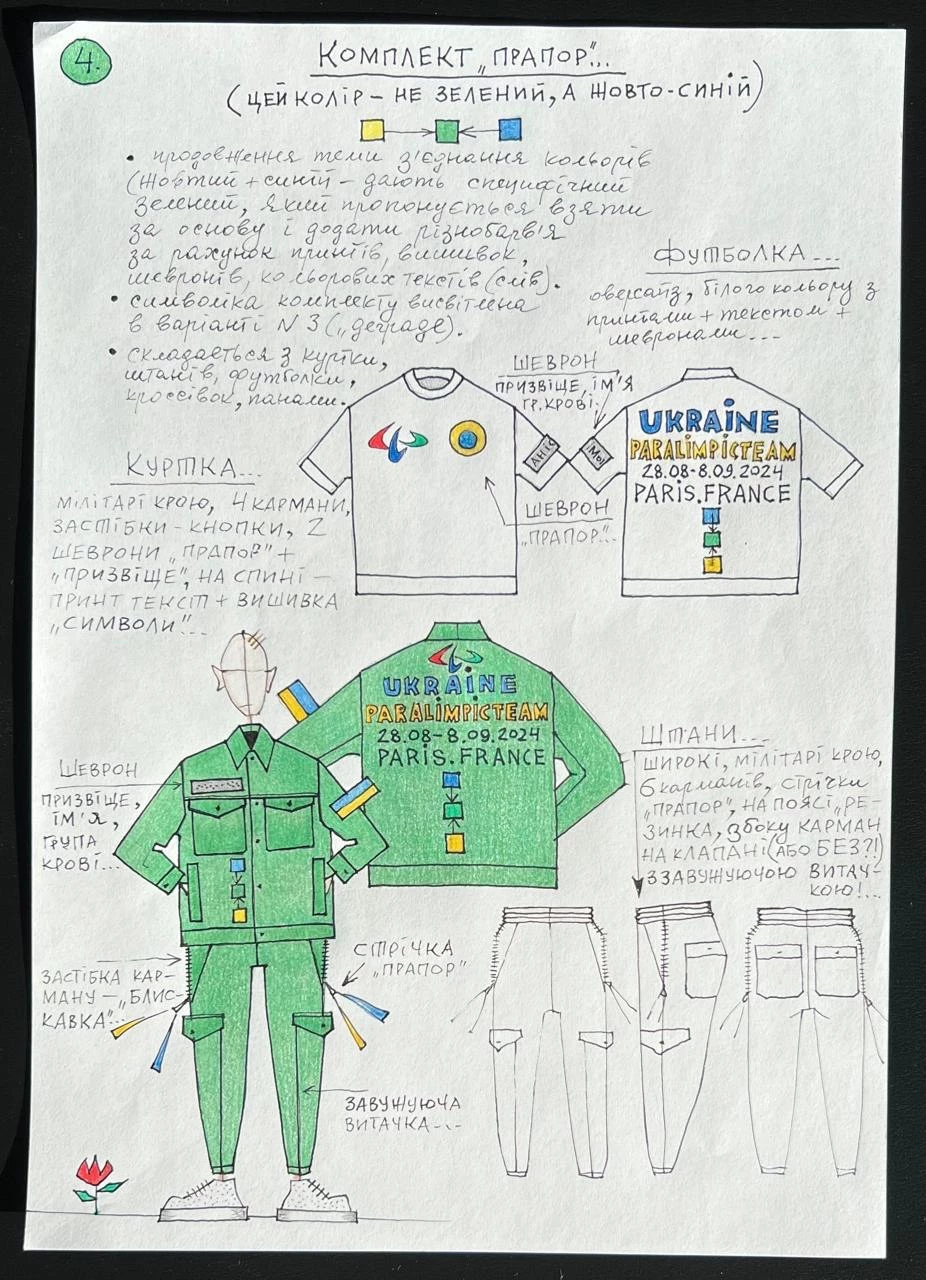 4.
КОМПЛЕКТ „ПРАПОР"...
(ЦЕЙ КОЛІР – НЕ ЗЕЛЕНИЙ, А ЖОВТО-СИНІЙ)
• продовження теми з'єднання кольорів
(жовтий + синій – дають специфічний
зелений, який пропонується взяти
за основу і додати різнобарв'я
за рахунок принтів, вишивок,
шевронів, кольорових текстів (слів).
• символіка комплекту висвітлена
в варіанті N 3 („деграде).
• складається з куртки,
штанів, футболки,
кроссівок, панами.
ФУТБОЛКА...
оверсайз, білого кольору з
принтами + текстом +
шевронами...
ШЕВРОН
ПРИЗВІЩЕ, ІМ'Я
ГР. КРОВІ.
UKRAINE
PARALIMPICTEAM
28.08-8.09.2024
PARIS.FRANCE
ШЕВРОН
„ПРАПОР"...
КУРТКА...
МІЛІТАРІ КРОЮ, 4 КАРМАНИ,
ЗАСТІБКИ - КНОПКИ, 2
ШЕВРОНИ „ПРАПОР" +
„ПРИЗВІЩЕ", НА СПИНІ –
ПРИНТ ТЕКСТ + ВИШИВКА
„СИМВОЛИ"...
UKRAINE
PARALIMPICTEAM
28.08-8.09.2024
PARIS.FRANCE
ШЕВРОН
ПРИЗВІЩЕ,
ІМ'Я,
ГРУПА
КРОВІ...
ШТАНИ....
ШИРОКІ, МІЛІТАРІ КРОЮ,
6 карманів, стрічки
„ПРАПОР", НА ПОЯСІ „РЕ-
ЗИНКА, збоку КАРМАН
НА КЛАПАНІ (АБО БЕЗ?!)
З ЗАВУЖУЮЧОЮ ВИТАЧ-
КОЮ!...
СТРІЧКА
„ПРАПОР"
ЗАСТІБКА КАР-
МАНУ – „БЛИС-
КАВКА"...
ЗАВУЖУЮЧА
ВИТАЧКА....